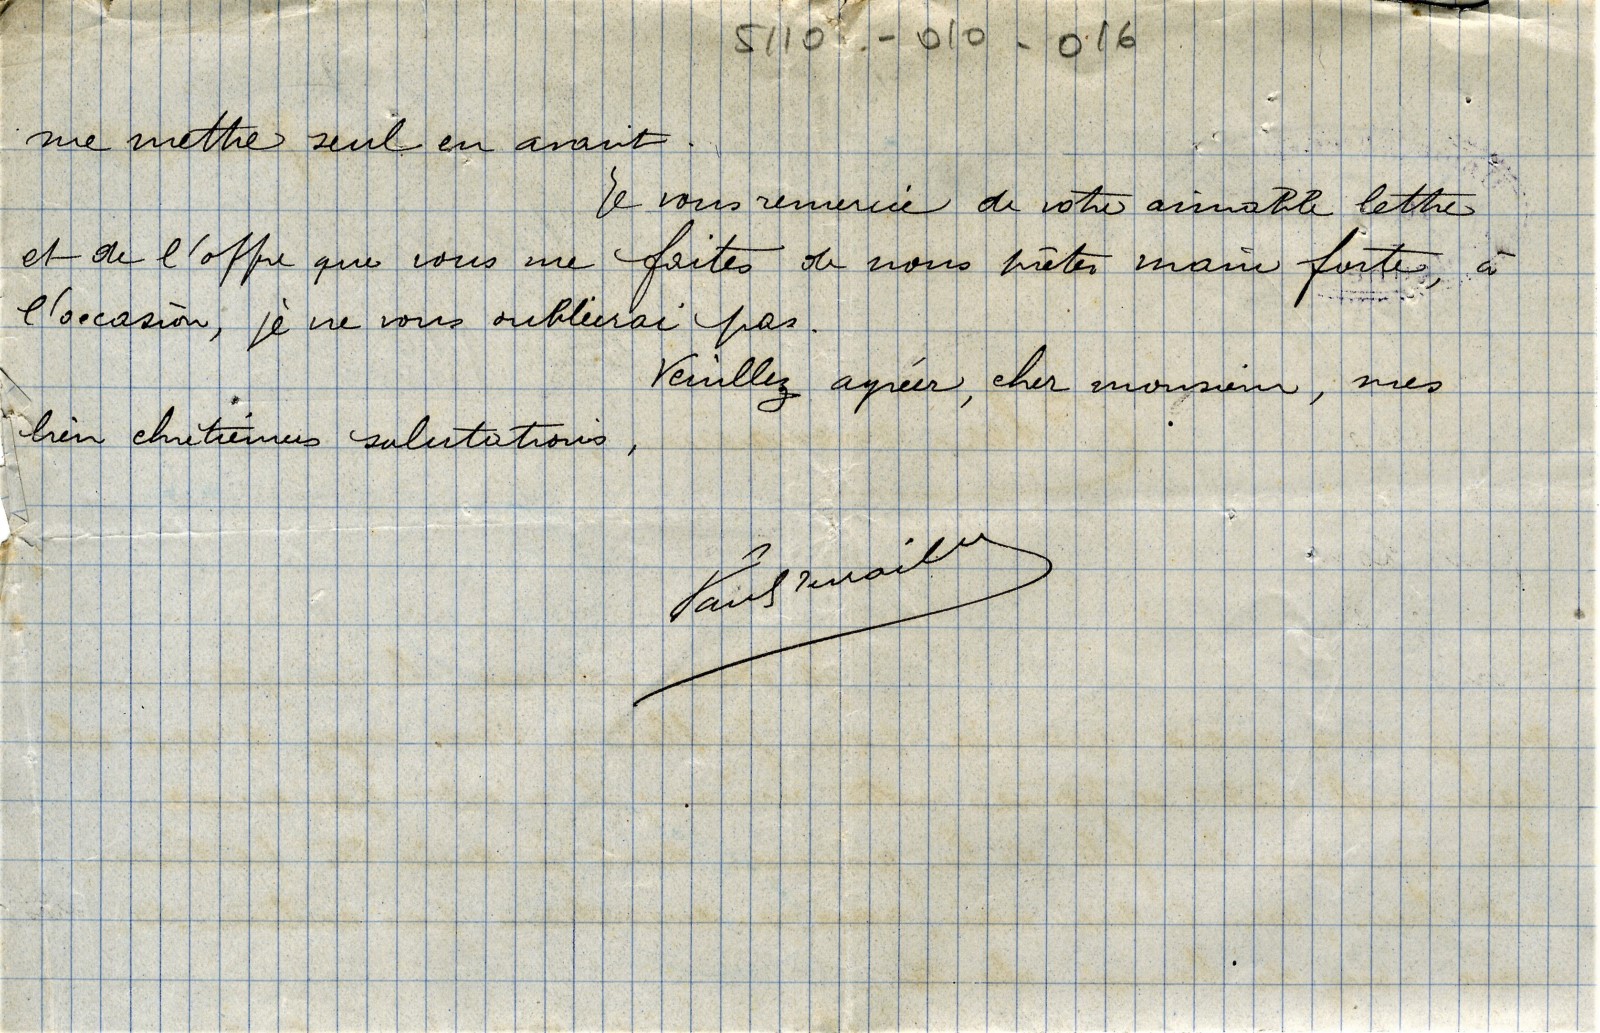 5110.-010-016
me mettre seul en avant.
Je vous remercie de votre aimable lettre
et de l'offre que vous me faites de nous prêter main forte, à
l'occasion, je ne vous oublierai pas.
Veuillez agréer, cher monsieur, mes
bien chrétiennes salutations,
Paul